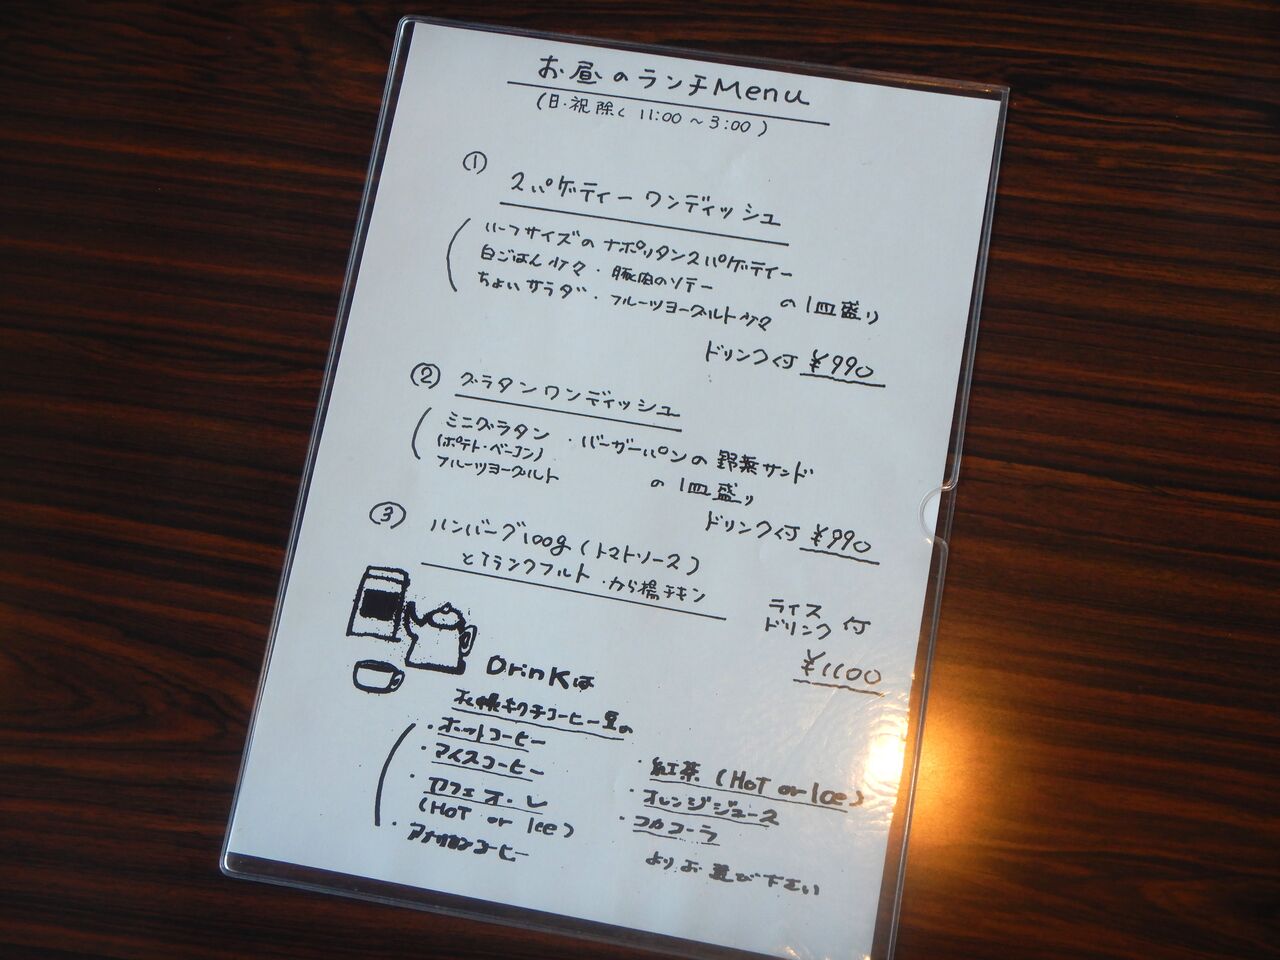 お昼のランチMenu
(日・祝除く 11:00～3:00)
① スパゲティーワンディッシュ
ハーフサイズのナポリタンスパゲティー
白ごはん少々・豚肉のソテー
ちょいサラダ・フルーツヨーグルト少々
の1皿盛り
ドリンク付 ¥990
② グラタンワンディッシュ
ミニグラタン・バーガーパンの野菜サンド
(ポテト・ベーコン)
フルーツヨーグルト
の1皿盛り
ドリンク付 ¥990
③ ハンバーグ100g(トマトソース)
とフランクフルト・から揚チキン
ライス
ドリンク 付
¥1100
Drinkは
札幌キクチコーヒー豆の
・ホットコーヒー
・アイスコーヒー
・カフェオ・レ
(HOT or Ice)
・アメリカンコーヒー
・紅茶(HOT or Ice)
・オレンジジュース
・コカコーラ
よりお選び下さい